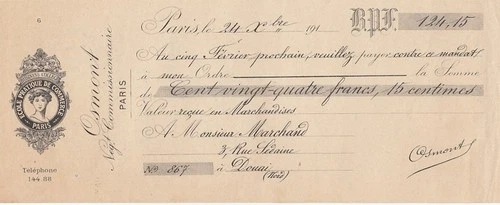 6
Paris, le 24 Xbre 191
B.P.F. 124.15
Au cinq Février prochain, veuillez payer contre ce mandat
à mon Ordre la Somme
de Cent vingt-quatre francs, 15 centimes
Valeur reçue en Marchandises
A Monsieur Marchand
3, Rue Sedaine
No 867 à Douai
(Nord)
Osmont
Osmont
Négt Commissionnaire
PARIS
ECOLE PRATIQUE DE COMMERCE
PARIS
Téléphone
144 88